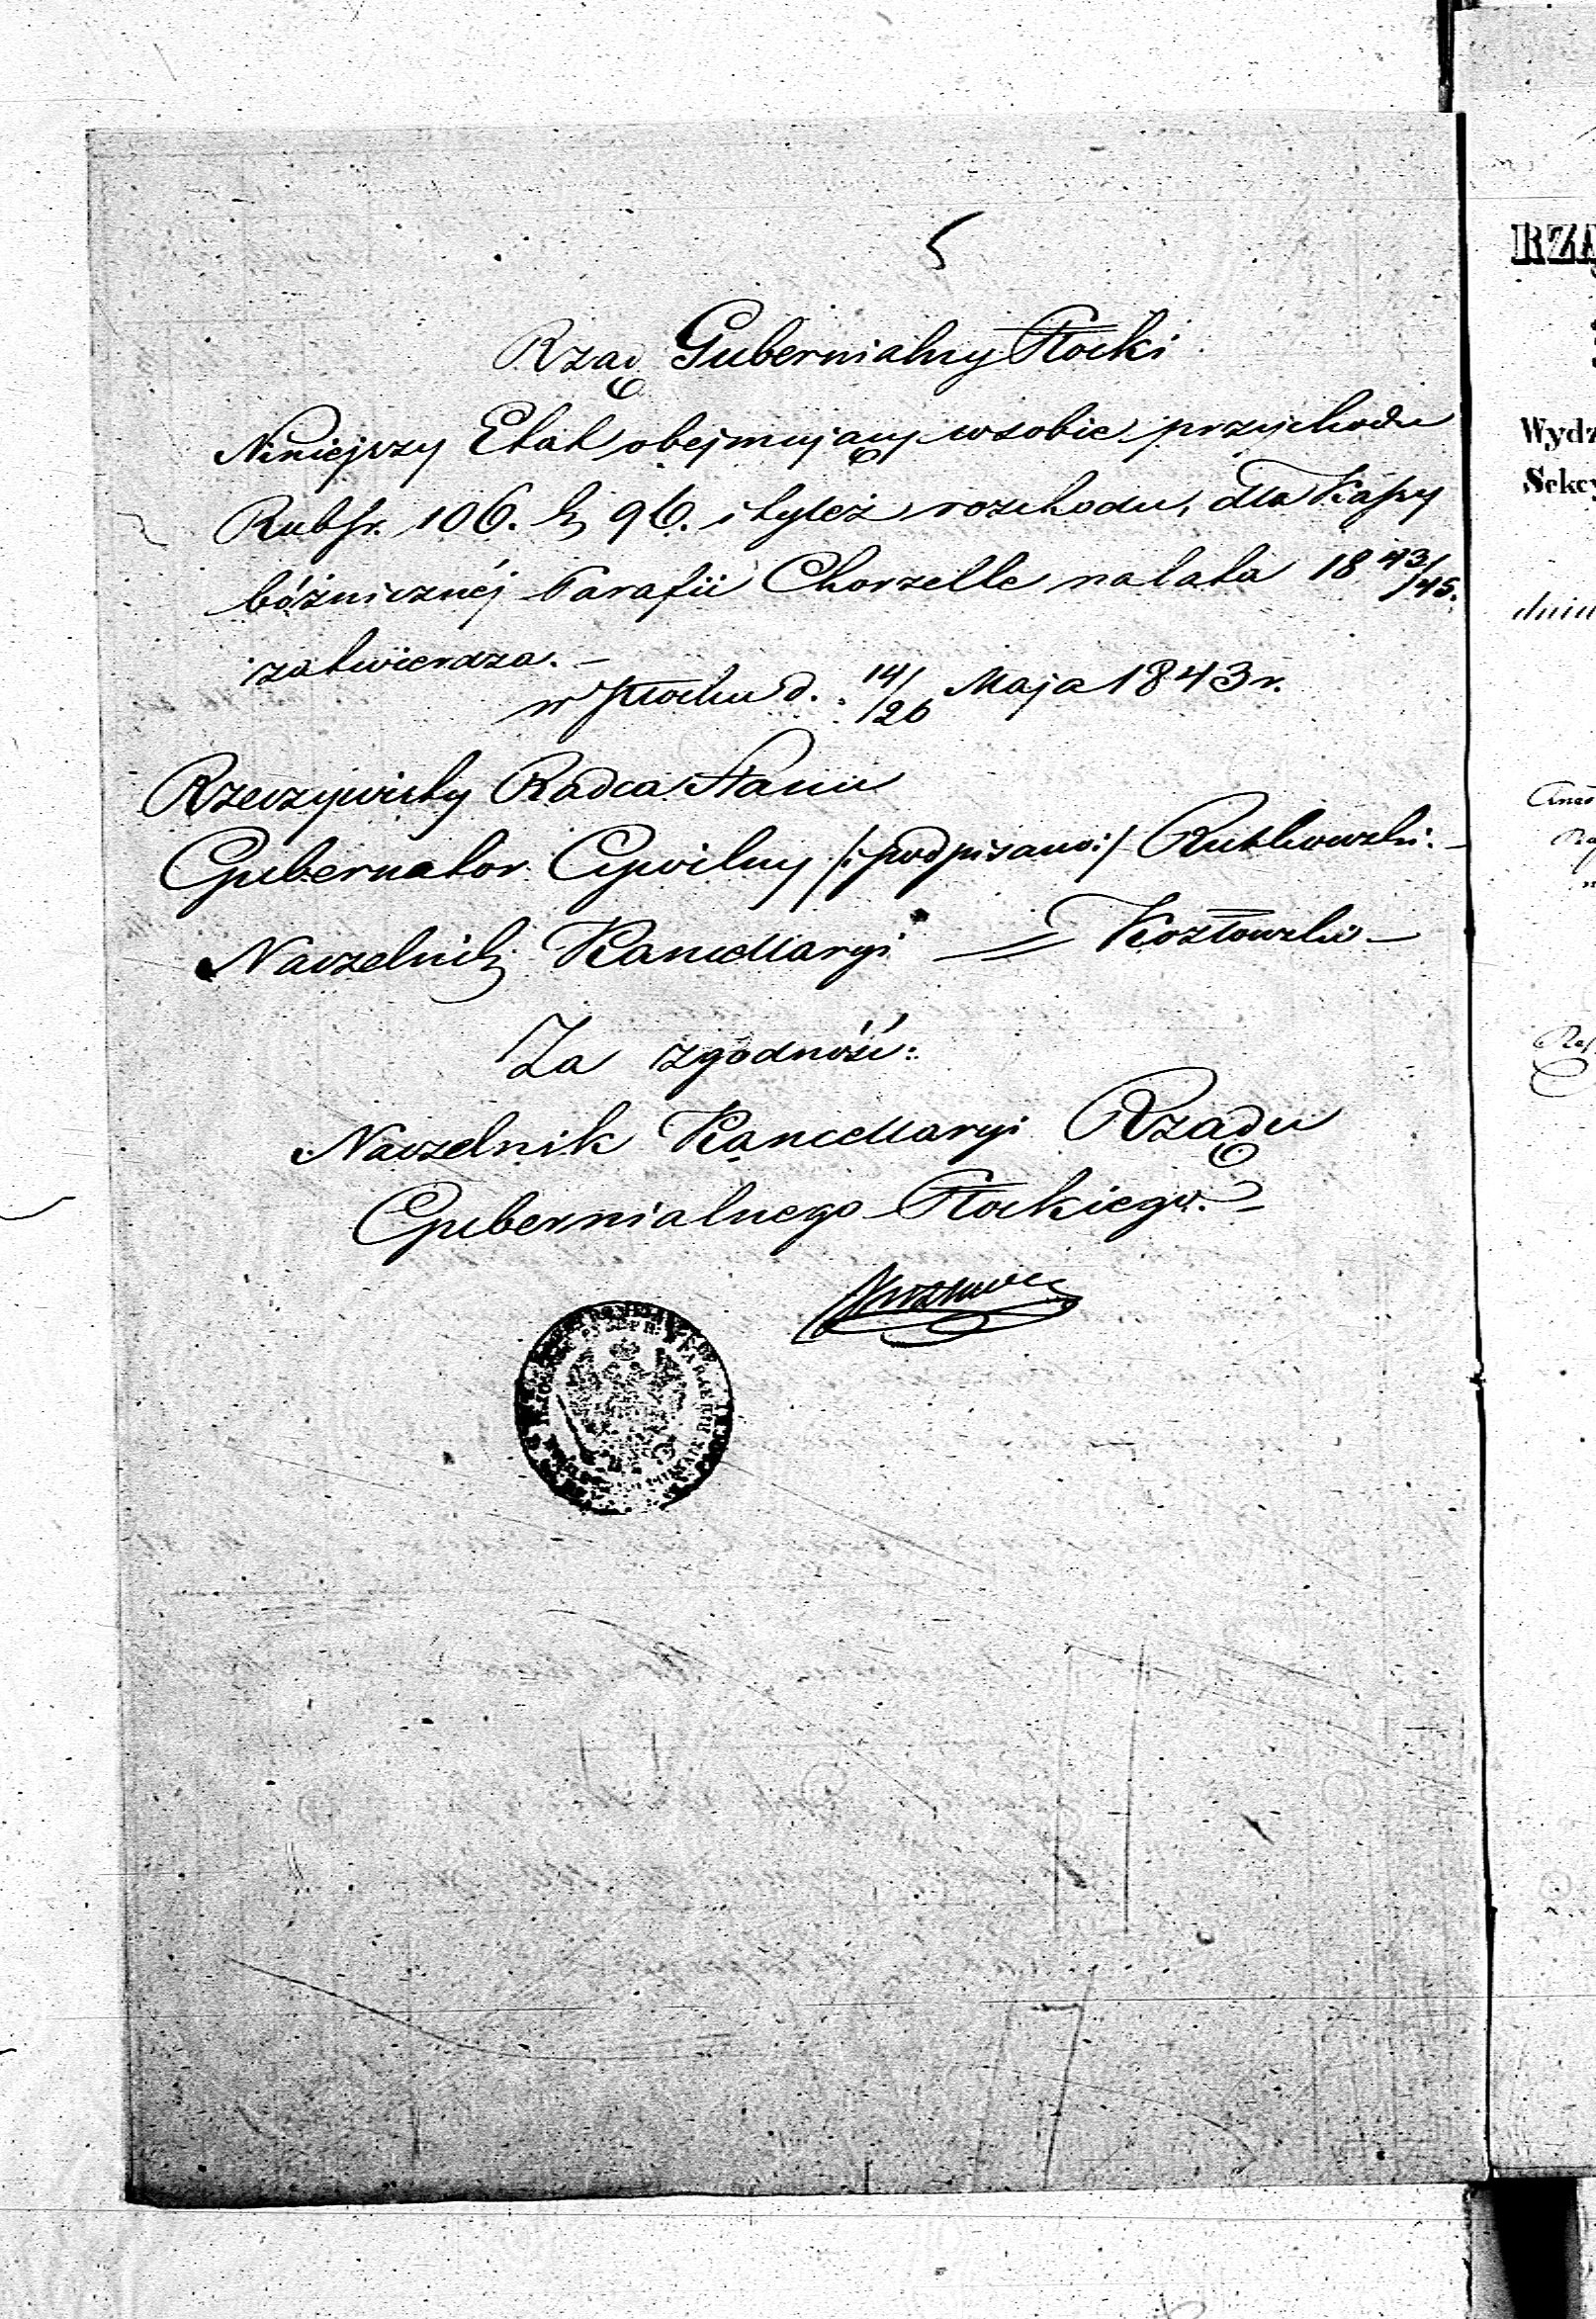 5
Rząd Gubernialny Płocki
Niniejszy Etat obejmujący w sobie przychodu
Rubsr. 106. k 96. i tyleż rozchodu, dla Kassy
bóżnicznéj Parafii Chorzelle na lata 18 43/45.
zatwierdza. –
w Płocku d. 14/26 Maja 1843 r.
Rzeczywisty Radca Stanu
Gubernator Cywilny /: podpisano :/ Rutkowski. –
Naczelnik Kancellaryi = Kozłowski –
Za zgodność:
Naczelnik Kancellaryi Rządu
Gubernialnego Płockiego
RZĄ
Wydz
Sekcy
dnia